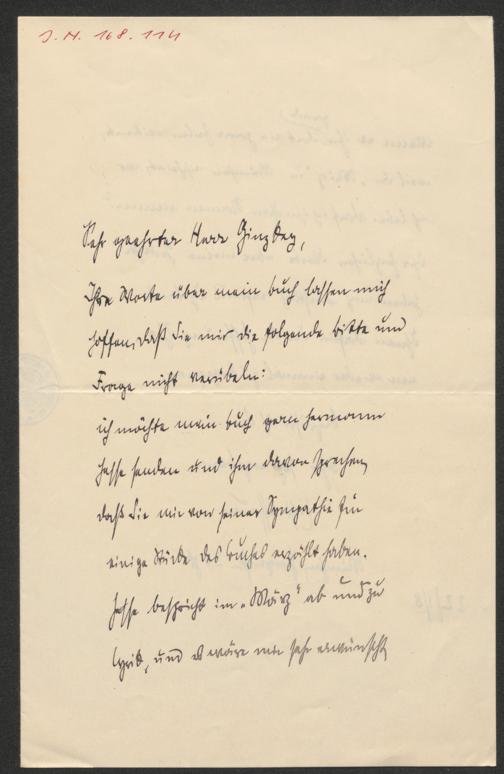 J. N. 168.114
Sehr geehrter Herr Ginzkey,
Ihre Worte über mein buch lassen mich
hoffen, daß Sie mir die folgende bitte und
Frage nicht verübeln:
ich möchte mein buch gern hermann
hesse senden und ihm davon sprechen,
daß Sie mir von seiner Sympathie für
einige Stücke des buches erzählt haben.
hesse bespricht im „März" ab und zu
lyrik, und es wäre mir sehr erwünscht,